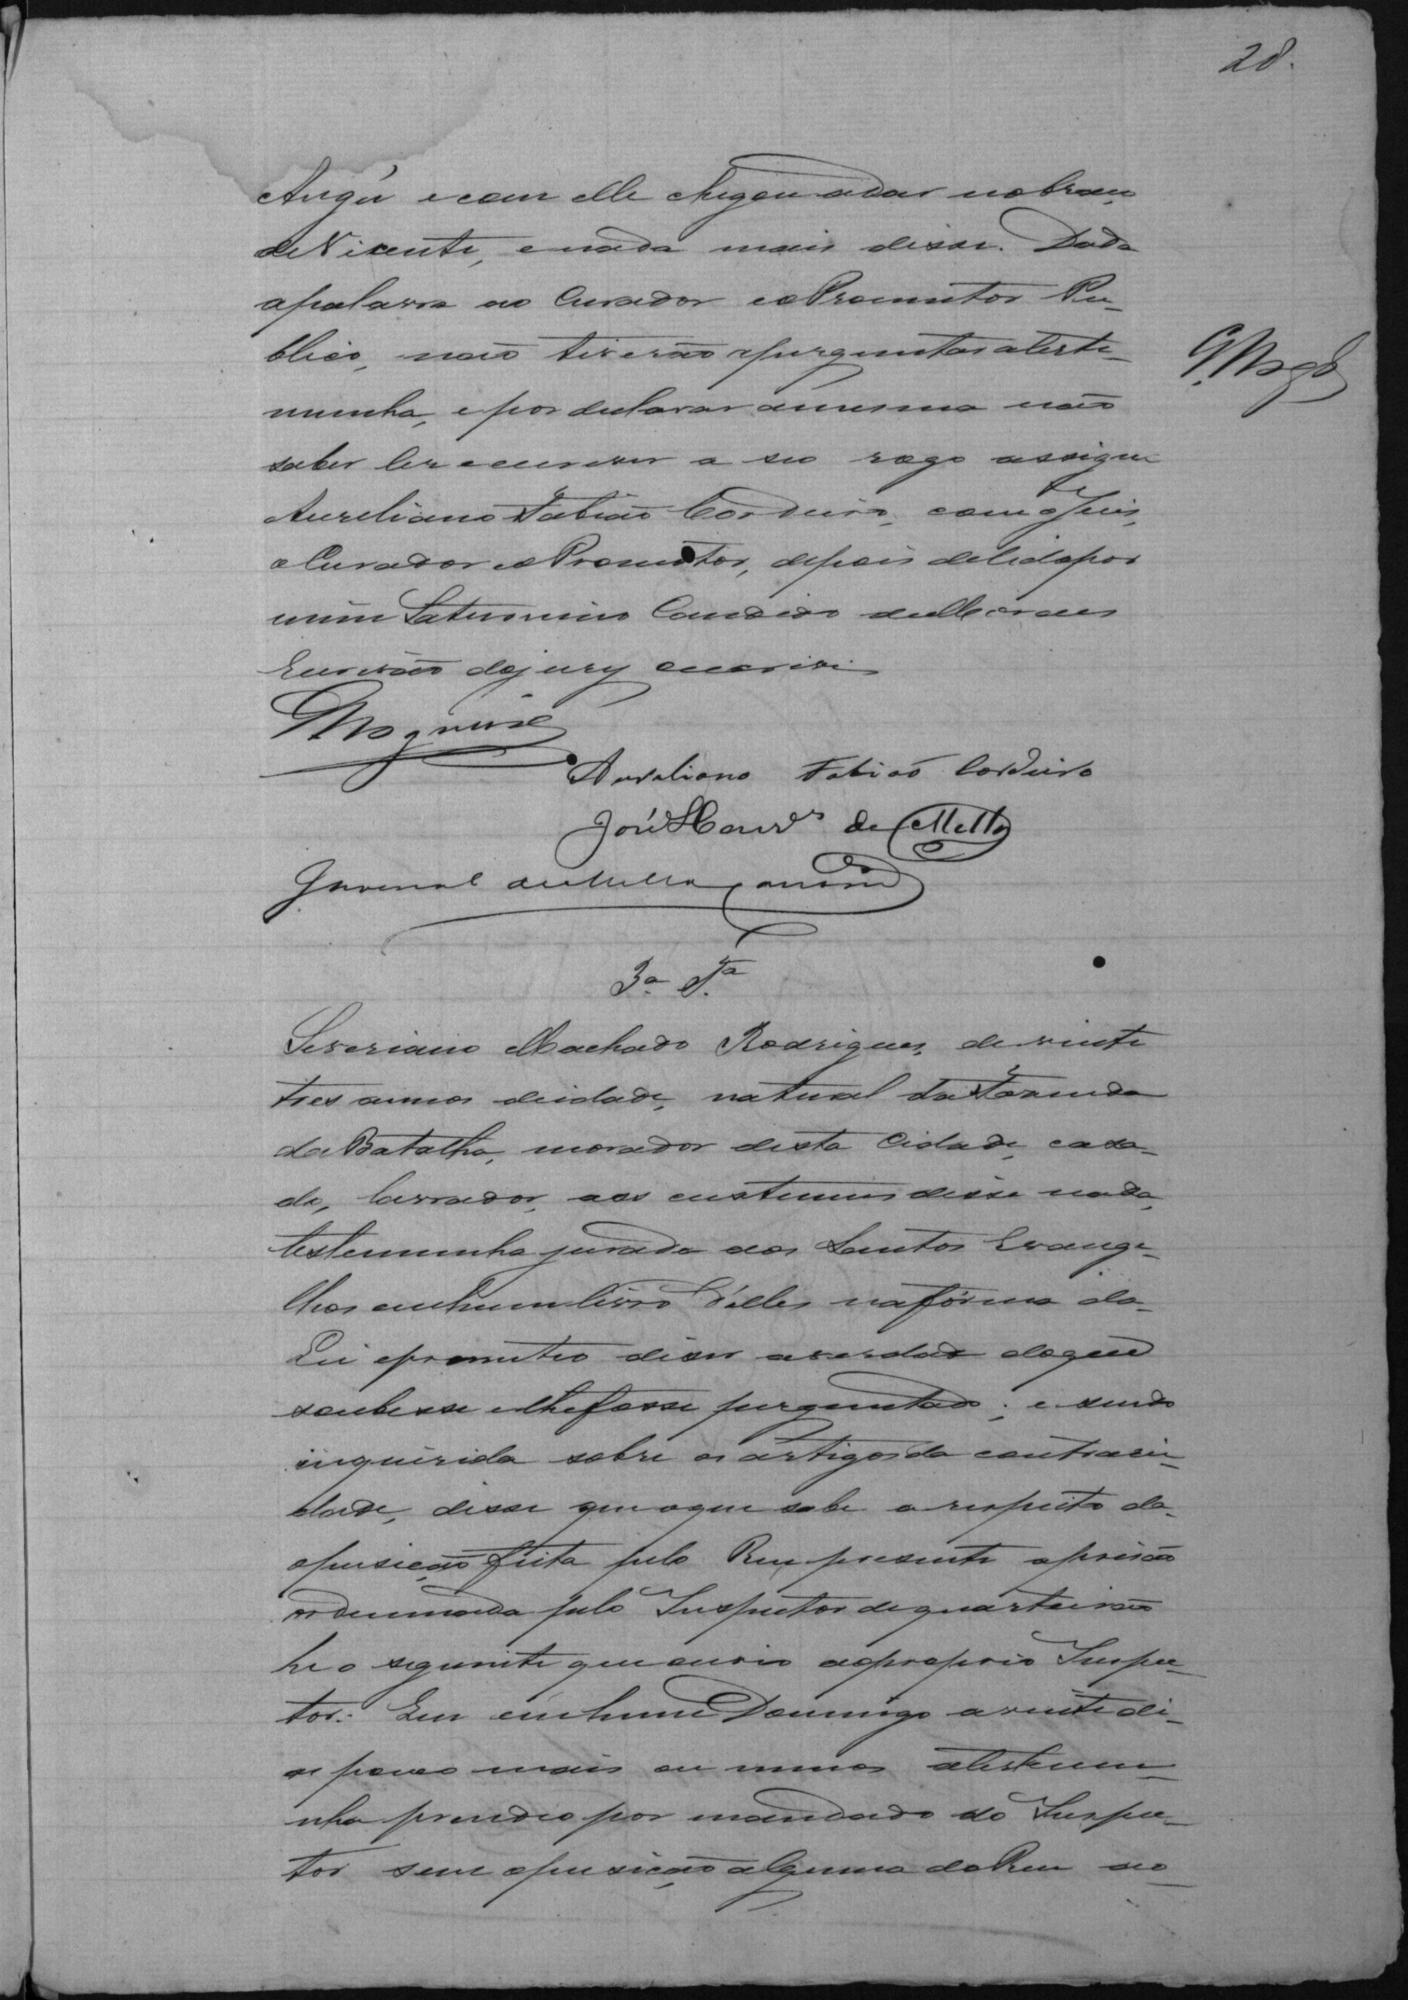 28.
Angú e com elle chegou a dar no braço
de Vicente, e nada mais disse. Dada
a palavra ao Curador e o Promutor Pu-
blico, naõ tiveraõ perguntas a teste-
munha, e por declarar a mesma naõ
saber ler e escrever a seo rogo assigna
Aureliano Fabiaõ Cordeiro, com o Juis,
o Curador e o Promotor, depois de lido por
mim Saturnino Candido de Moraes
Escrivaõ do jury escrivi
Aureliano Fabiaõ Cordeiro
José de Mello
Juvenal de Mello
3.a T.a
Severiano Machado Rodrigues, de vinte
tres annos de idade, natural da Fazenda
da Batalha, morador desta Cidade, casa-
do, lavrador, aos custumes disse nada,
testemunha jurada aos Santos Evange-
lhos em hum livro d'elles na fórma da
Lei e promuteo diser a verdade do que
soubesse e lhe fosse perguntado; e sendo
inquirida sobre os artigos da contrarie-
dade, disse que o que sabe a respeito da
opusicaõ feita pelo Reu presente a prisaõ
ordennada pelo Inspetor de quarteiraõ
he o seguinte que ouvio ao proprio Inspe-
tor: Em em hum Domingo a vinte di-
as pouco mais ou menos a testemu-
nha prendeo por mandado do Inspe-
tor sem opusiçaõ alguma do Reu ao